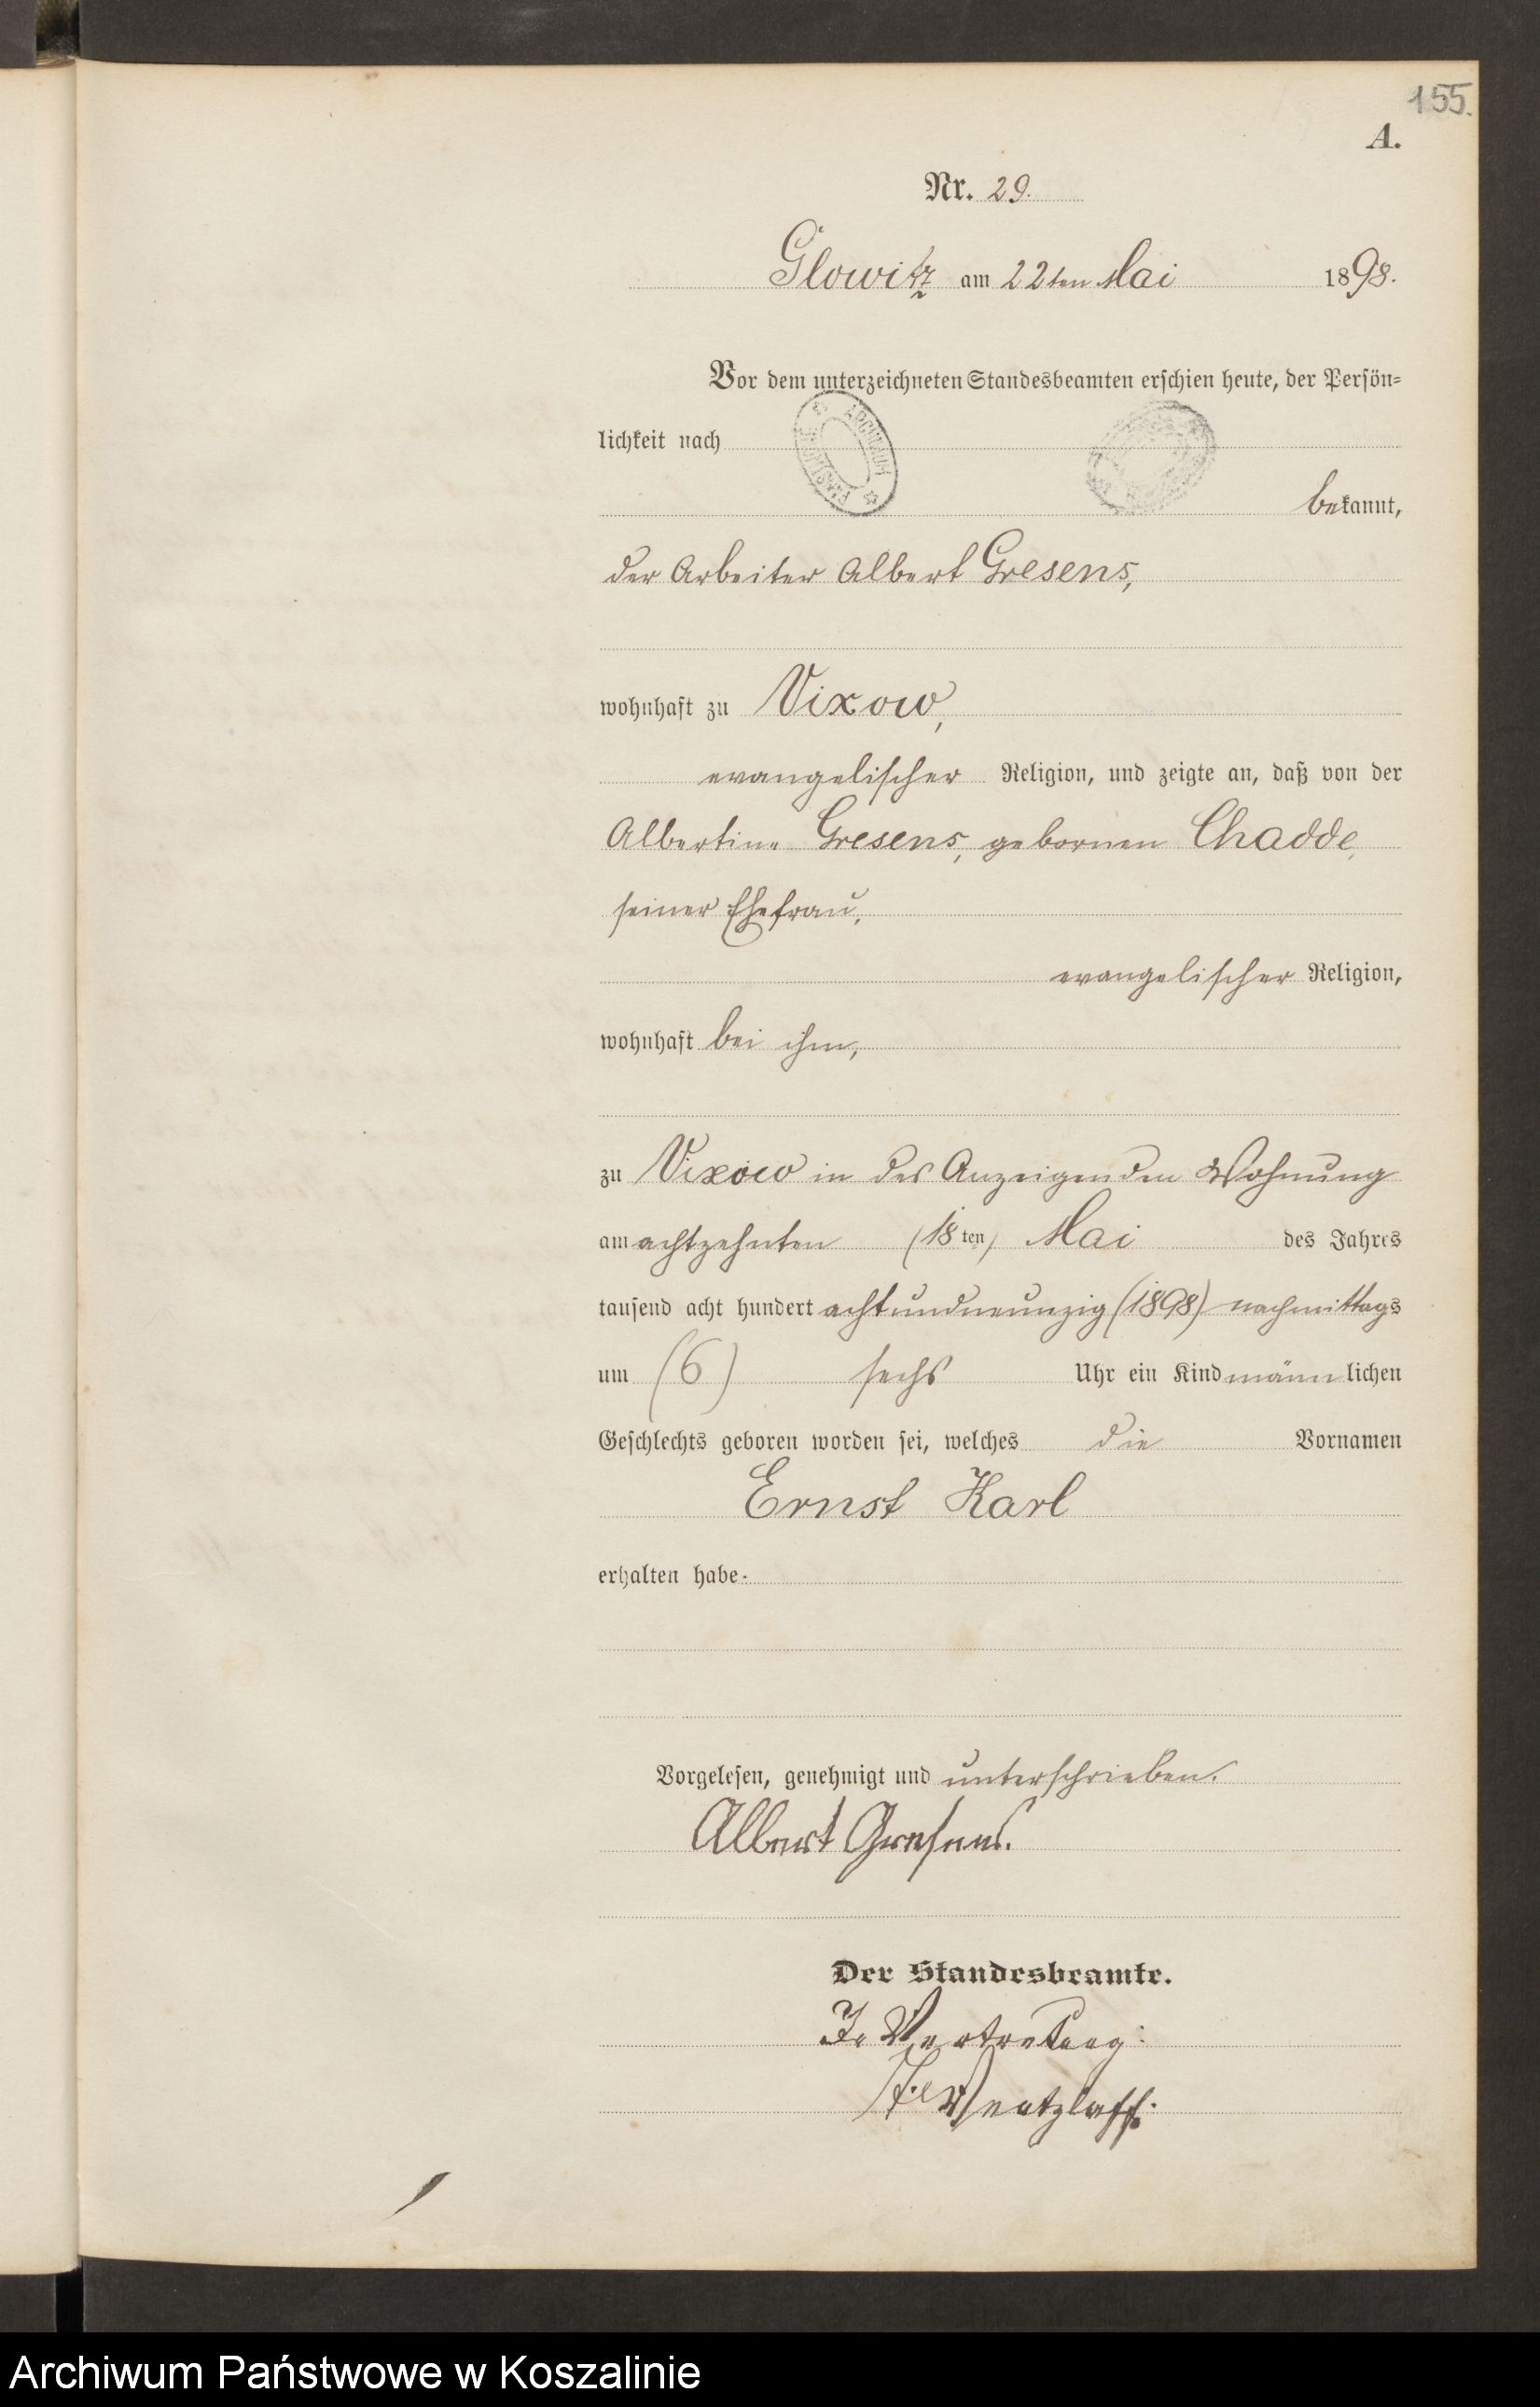 155.
A.
Nr. 29.
Glowitz am 22ten Mai 1898.
Vor dem unterzeichneten Standesbeamten erschien heute, der Persön-
lichkeit nach
bekannt,
der Arbeiter Albert Gresens,
wohnhaft zu Vixow,
evangelischer Religion, und zeigte an, daß von der
Albertine Gresens, gebornen Chadde,
seiner Ehefrau,
evangelischer Religion,
wohnhaft bei ihm,
zu Vixow in des Anzeigenden Wohnung
am achtzehnten (18ten) Mai des Jahres
tausend acht hundert achtundneunzig (1898) nachmittags
um (6) sechs Uhr ein Kind männlichen
Geschlechts geboren worden sei, welches die Vornamen
Ernst Karl
erhalten habe.
Vorgelesen, genehmigt und unterschrieben.
Albert Gresens.
Der Standesbeamte.
In Vertretung:
Wentzlaff.
Archiwum Państwowe w Koszalinie